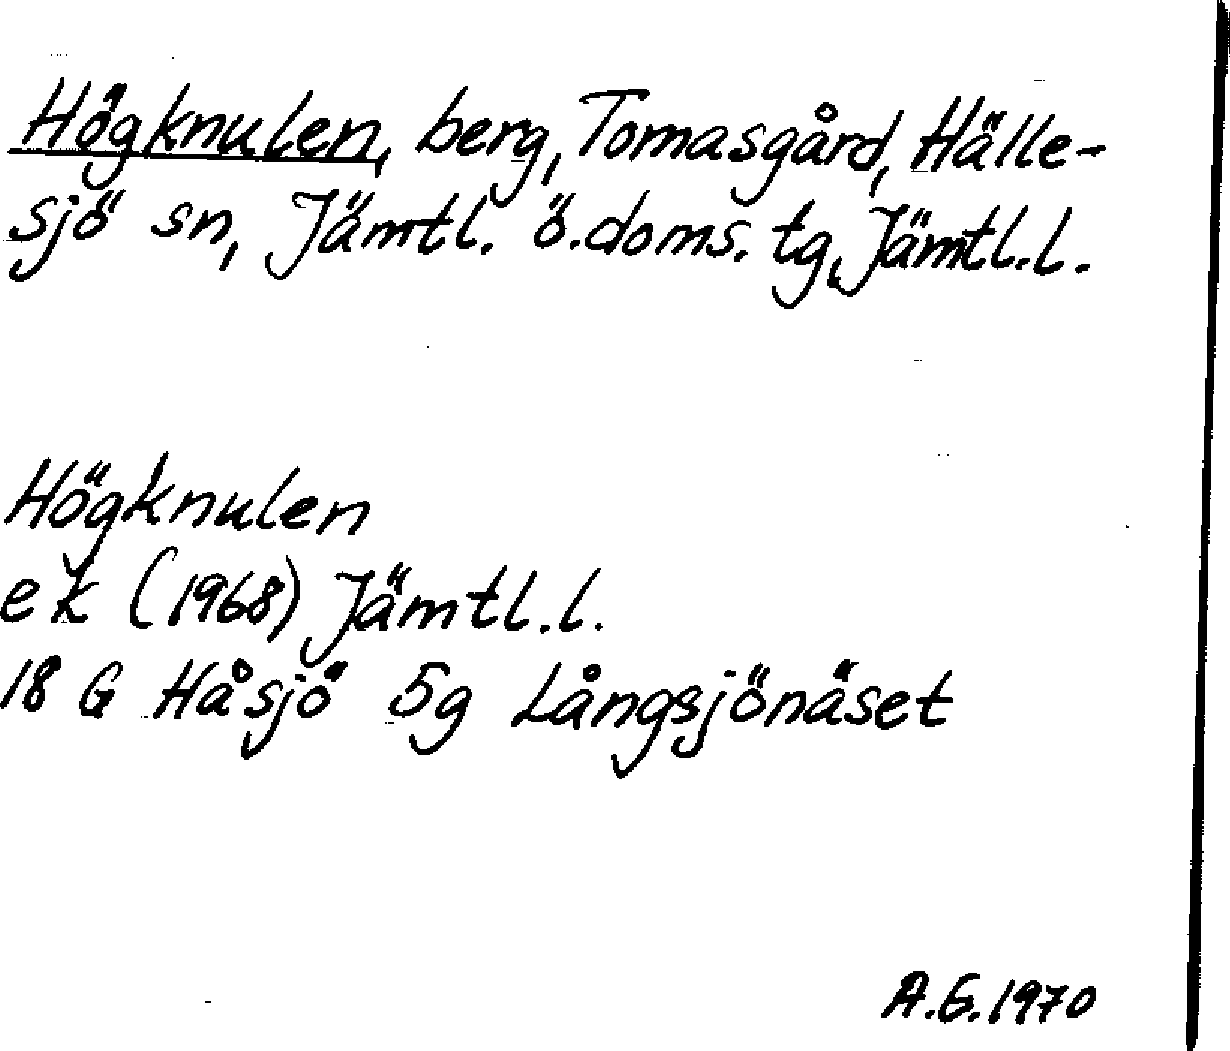 Högknulen, berg, Tomasgård, Hälle-
sjö sn, Jämtl. ö.doms. tg, Jämtl.l.
Högknulen
ek (1968) Jämtl.l.
18 G Håsjö 5g Långsjönäset
A.G.1970